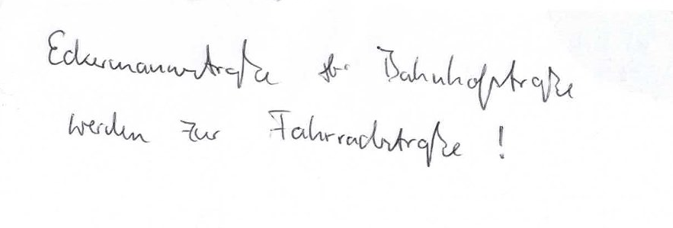 Eckermannstraße Bahnhofstraße
werden zur Fahrradstraße !